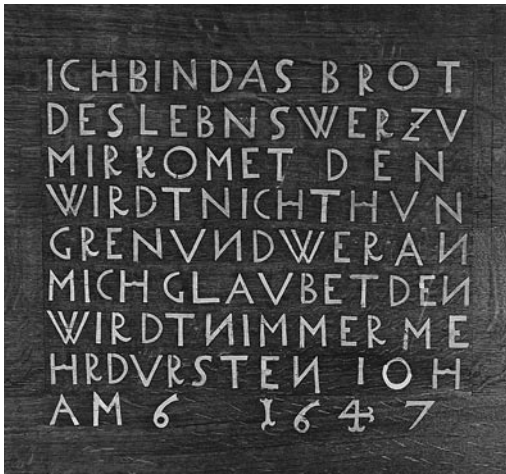 ICHBINDAS BROT
DESLEBNSWERZV
MIRKOMET DEN
WIRDTNICHTHVN
GRENVNDWERAN
MICHGLAVBETDEN
WIRDTNIMMERME
HRDVRSTEN IOH
AM 6 1647